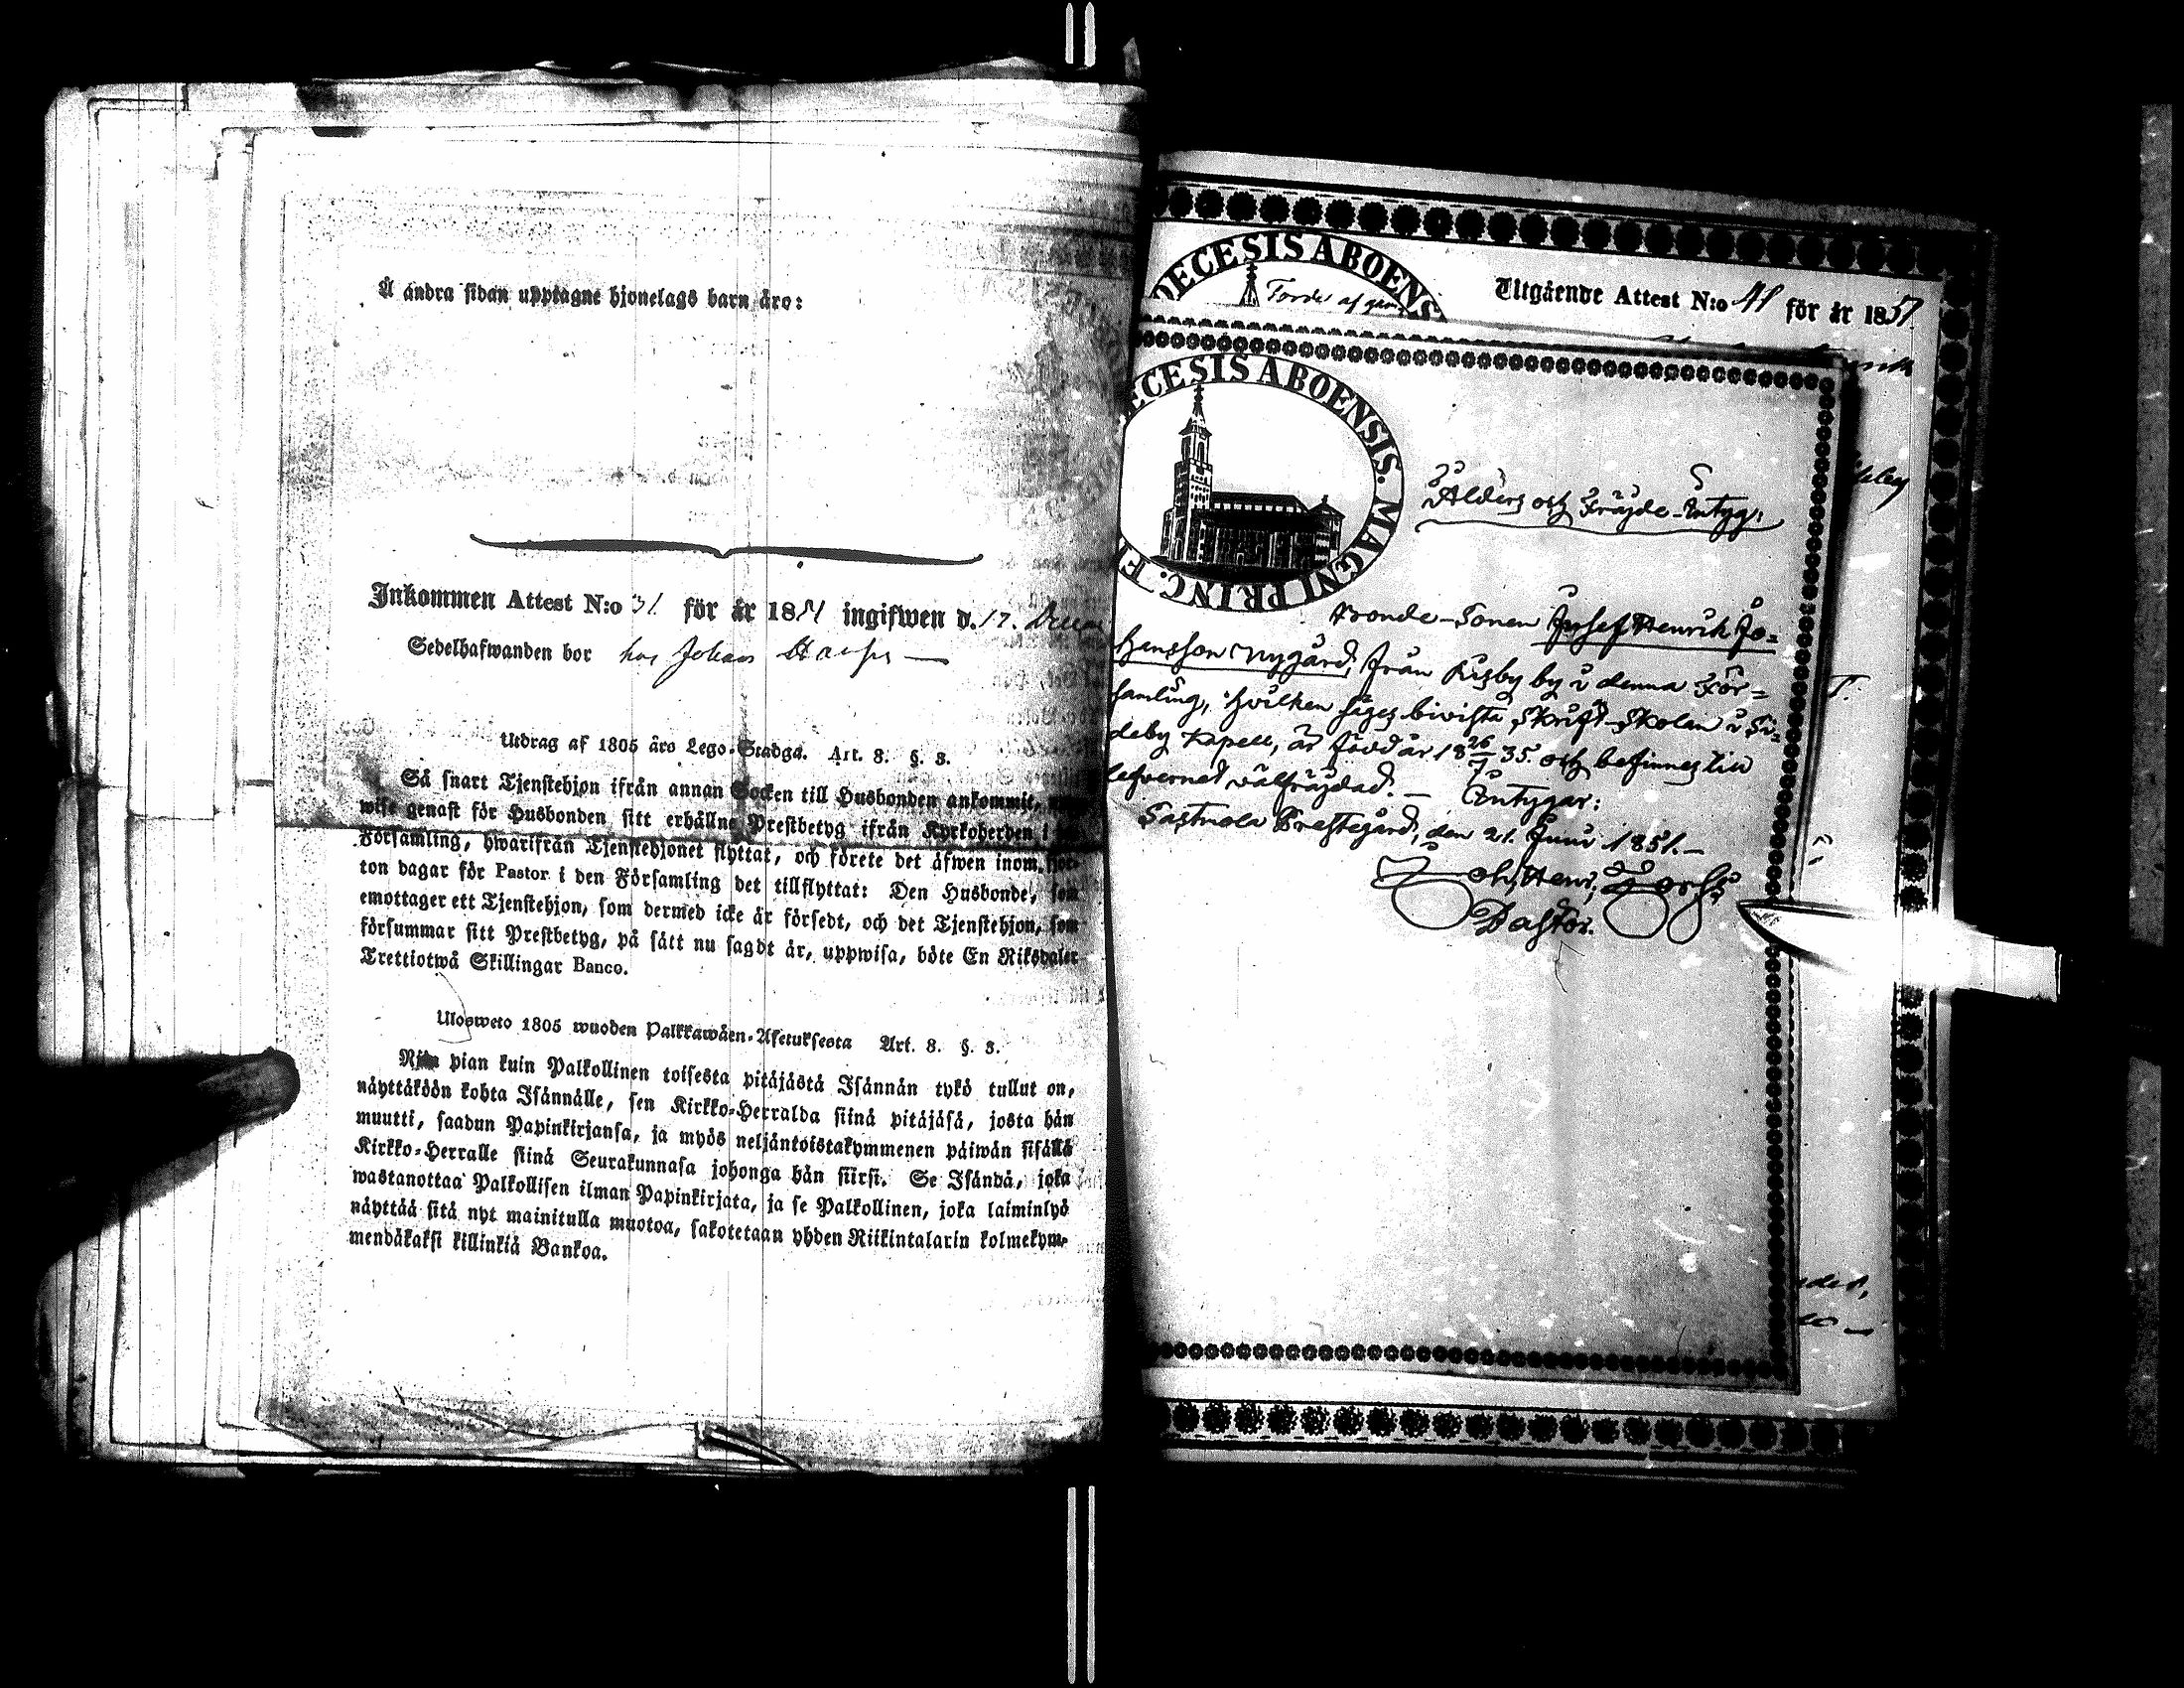 Å andra sidan upptagne hjonelags barn äro:
Inkommen Attest N:o 31 för år 1851 ingifwen d. 17.
Sedelhafwanden bor hos Johan
Utdrag af 1805 års Lego-Stadga. Art. 8. §. 3.
Så snart Tjenstehjon ifrån annan Socken till Husbonden ankommit,
wise genast för Husbonden sitt erhållne Prestbetyg ifrån Kyrkoherden i
Församling, hwarifrån Tjenstehjonet flyttat, och förete det äfwen inom fjor-
ton dagar för Pastor i den Församling det tillflyttat: Den Husbonde, som
emottager ett Tjenstehjon, som dermed icke är försedt, och det Tjenstehjon, som
försummar sitt Prestbetyg, på sätt nu sagdt är, uppwisa, böte En Riksdaler
Trettiotwå Skillingar Banco.
Ulosweto 1805 wuoden Palkkawäen-Asetuksesta Art. 8. §. 3.
Niin pian kuin Palkollinen toisesta pitäjästä Isännän tykö tullut on,
näyttäköön kohta Isännälle, sen Kirkko-Herralda siinä pitäjäsä, josta hän
muutti, saadun Papinkirjansa, ja myös neljäntoistakymmenen päiwän sisällä
Kirkko-Herralle siinä Seurakunnasa johonga hän siirsi. Se Isändä, joka
wastanottaa Palkollisen ilman Papinkirjata, ja se Palkollinen, joka laiminlyö
näyttää sitä nyt mainitulla muotoa, sakotetaan yhden Riikintalarin kolmekym-
mendäkaksi killinkiä Bankoa.
DECESIS ABOENS
Utgående Attest N:o 41 för år 1851.
ECESIS ABOENSIS. MAGNI PRINC. F
Ålders och Fräjde-Intyg.
Bonde-Sonen Josef Henrik Jo=
hansson Nygård, från Kisby by i denna För=
samling, hvilken säges bivista Skrift-Skolan i Si=
deby Kapell, är född år 18 26/7 35. och befinnes till
lefvernet välfräjdad. — Intygar:
Sastmola Prestegård, den 21. Juni 1851. —
Joh. Henr. Forss
Pastor.